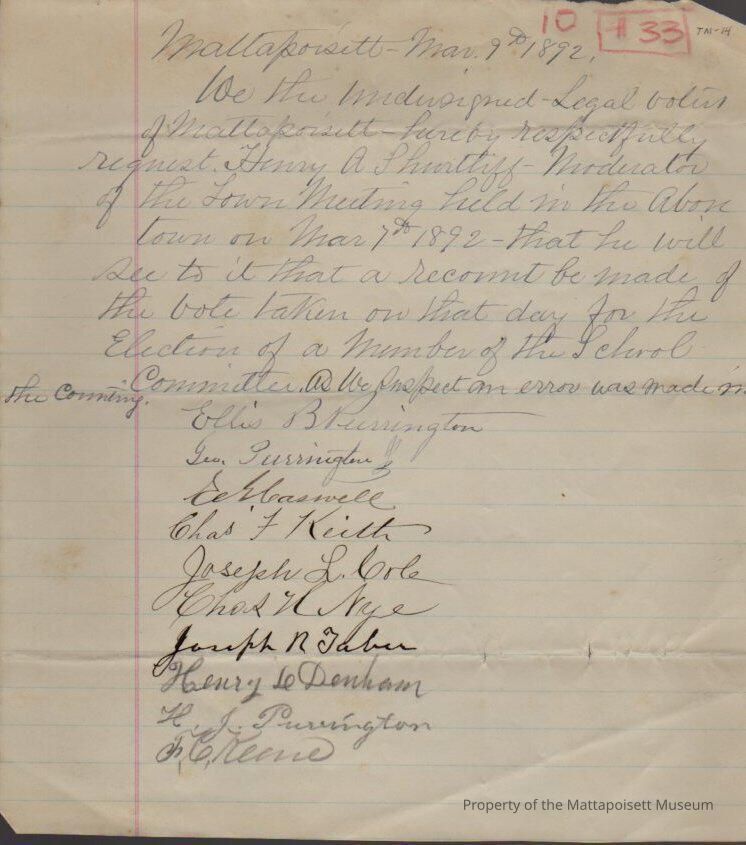 10 # 33 TM-14
Mattapoisett - Mar. 9th 1892.
We the Undersigned - Legal voters
of Mattapoisett - hereby respectfully
request. Henry A Shurtliff - Moderator
of the Town Meeting held in the Above
town on Mar 7th 1892 - that he will
see to it that a recount be made of
the vote taken on that day for the
Election of a Member of the School
Committee. As We Suspect an error was made in
the Counting.
Ellis B Purrington
Geo. Purrington Jr
E Caswell
Chas F Keith
Joseph L. Cole
Chas H Nye
Joseph R Taber
Henry Denham
H. J. Purrington
F. C. Keene
Property of the Mattapoisett Museum